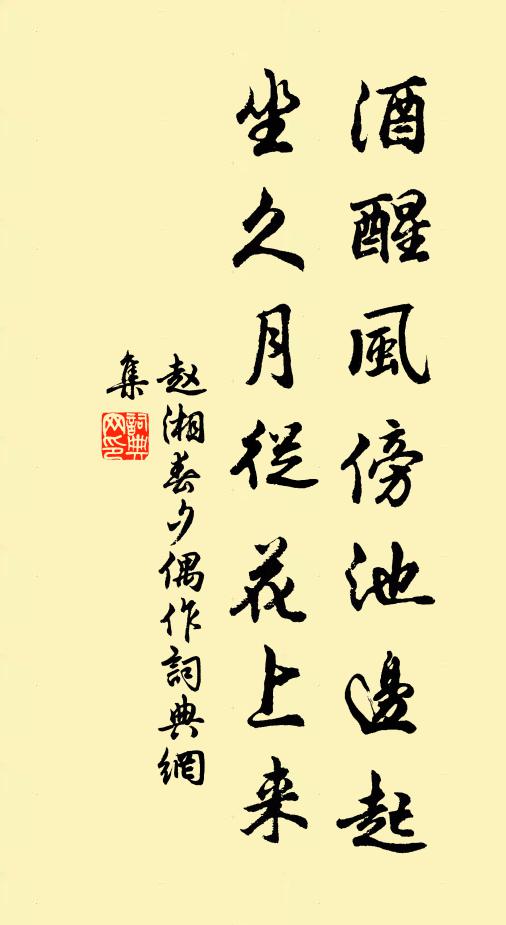 酒醒風傍池邊起
坐久月從花上来
赵湘春夕偶作詞典網
集
詞典网印